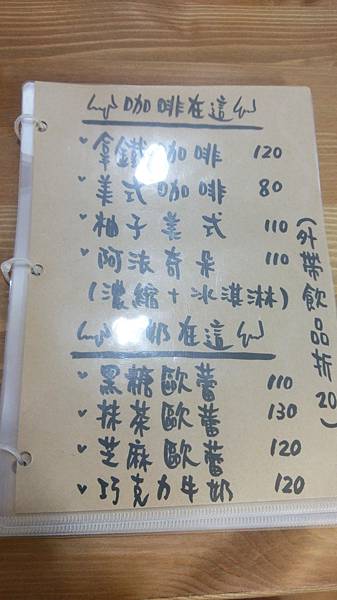 咖啡在這
拿鐵咖啡 120
美式咖啡 80
柚子美式 110
阿法奇朵 110
(濃縮+冰淇淋)
奶在這
黑糖歐蕾 110
抹茶歐蕾 130
芝麻歐蕾 120
巧克力牛奶 120
(外帶飲品折20)